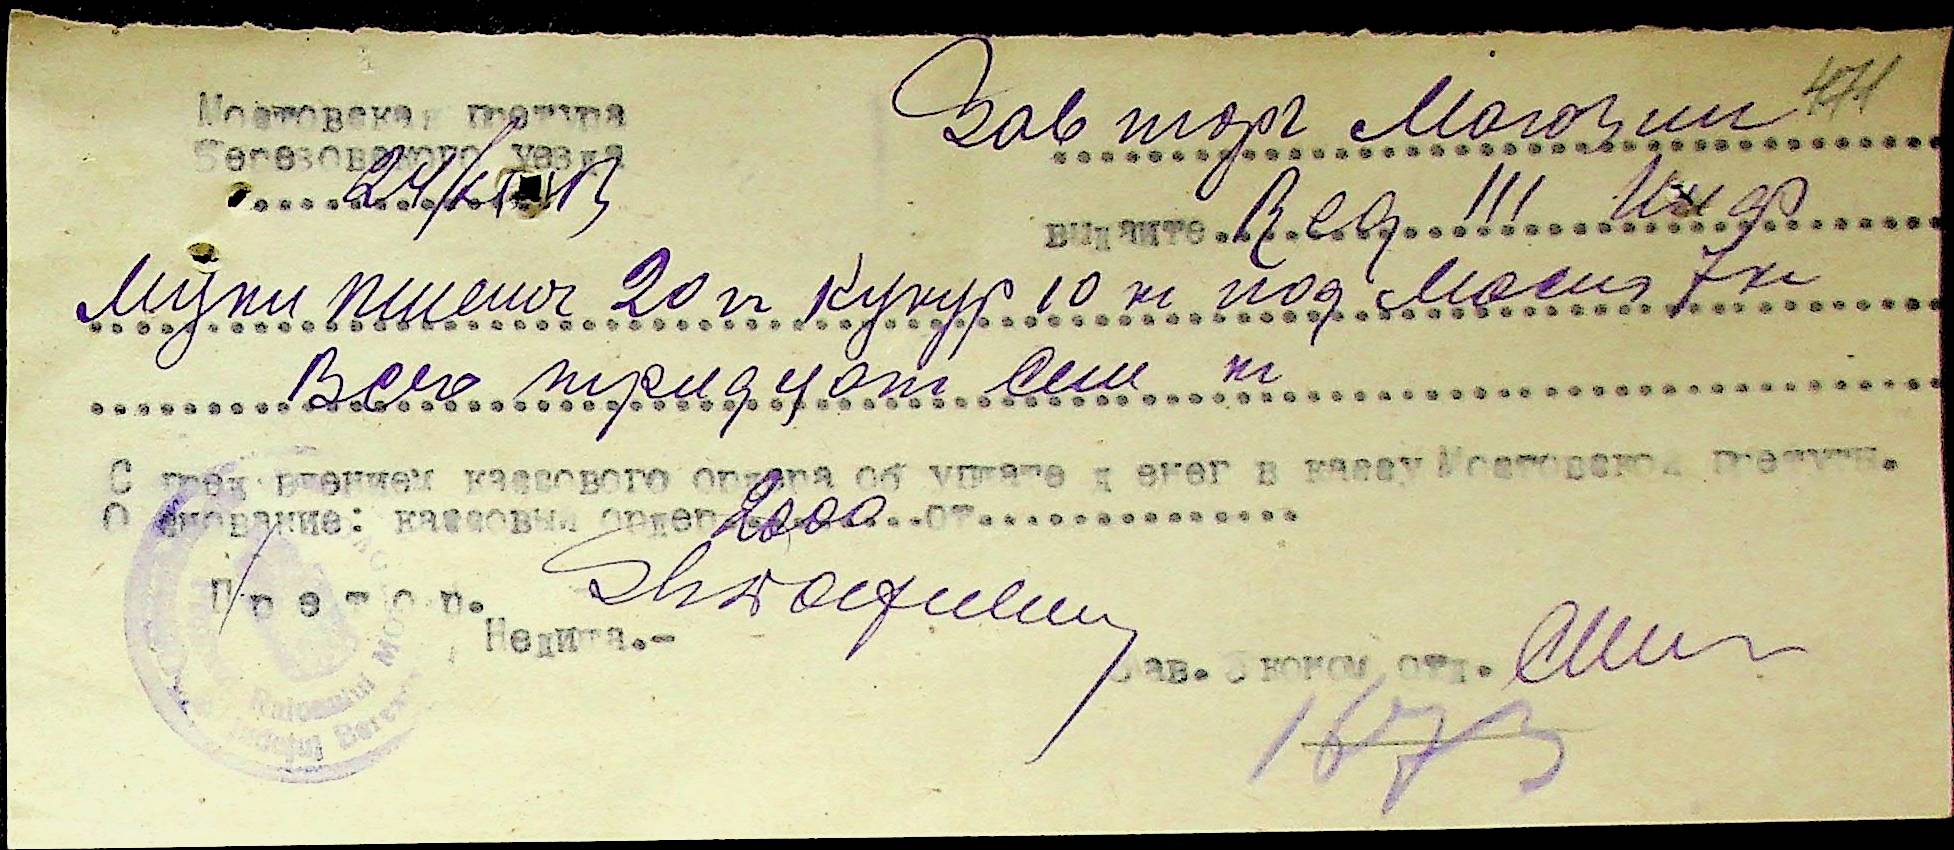 471
Мостовская претура
Березовского уезда
Зав торг Магозин
24/XII 43
выдайте Ред !!! Инф
Муки пшенич 20 кг Кукур 10 кг под Масия 7 кг
Всего тридцат Сем кг
С пред'явлением кассового ордера об уплате денег в кассу Мостовской претуры.
Основание: кассовый ордер 2000 от
Претор.
Недита.-
Зав. Эконом отд.
Raionului Mos
Judeţul Berez
1673